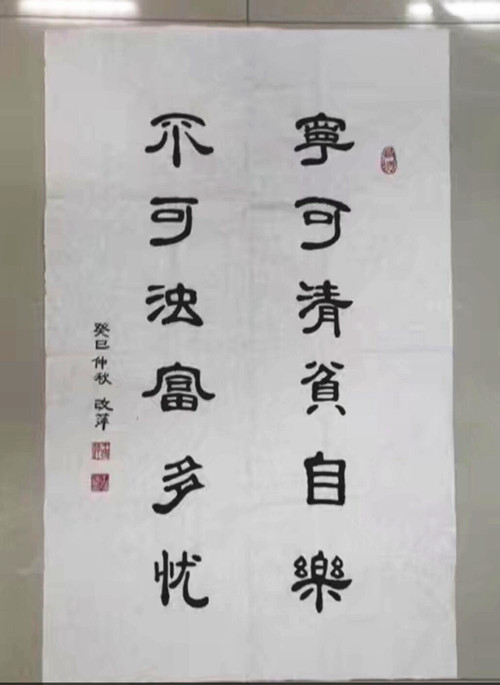 寧可清貧自樂
不可浊富多忧
癸巳仲秋 改萍